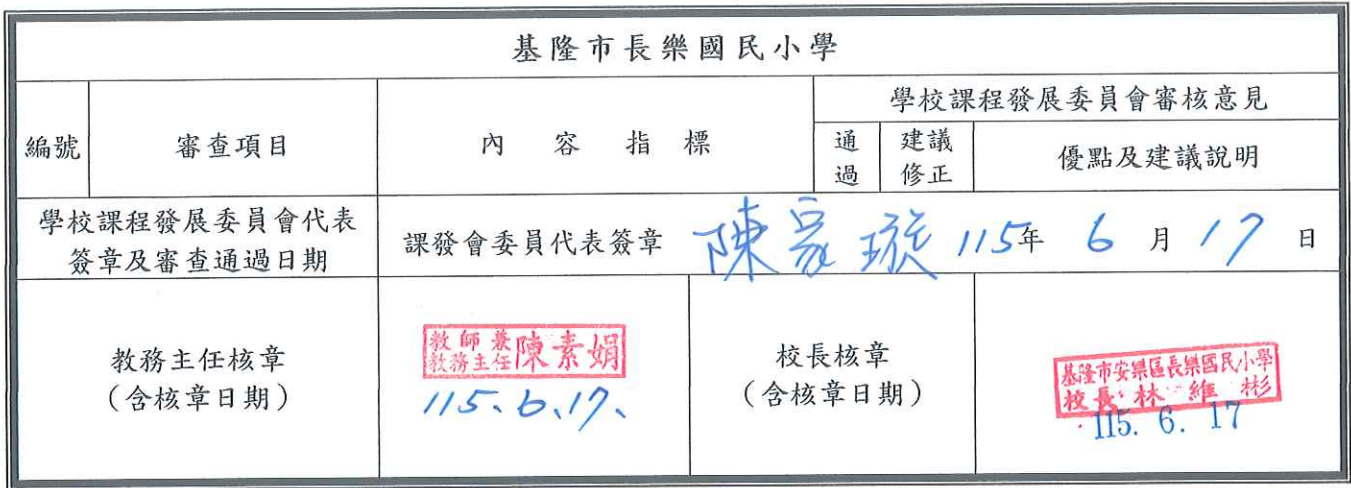 基隆市長樂國民小學
編號 審查項目 內容指標 學校課程發展委員會審核意見
通過 建議修正 優點及建議說明
學校課程發展委員會代表
簽章及審查通過日期
課發會委員代表簽章 陳家璇 115年 6 月 17 日
教務主任核章
(含核章日期)
教師兼
教務主任 陳素娟
115.6.17.
校長核章
(含核章日期)
基隆市安樂區長樂國民小學
校長 林維彬
115. 6. 17